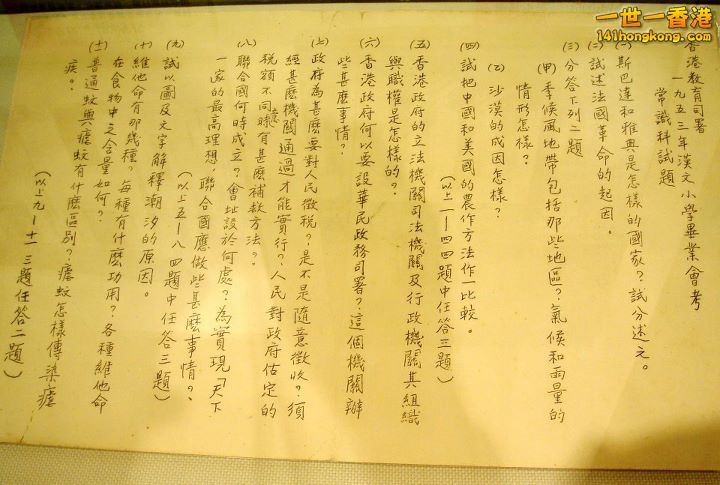 香港教育司署
一九五三年漢文小學畢業會考
常識科試題
(一)斯巴達和雅典是怎樣的國家?試分述之。
(二)試述法國革命的起因。
(三)分答下列二題
(甲)季候風地帶包括那些地區?氣候和雨量的
情形怎樣?
(乙)沙漠的成因怎樣?
(四)試把中國和美國的農作方法作一比較。
(以上一—四四題中任答三題)
(五)香港政府的立法機關司法機關及行政機關其組織
與職權是怎樣的?
(六)香港政府何以要設華民政務司署?這個機關辦
些甚麽事情?
(七)政府為甚麽要對人民徵稅?是不是隨意徵收?須
經甚麽機關通過才能實行?人民對政府估定的
稅額不同意時有甚麽補救方法?
(八)聯合國何時成立?會址設於何處?為實現「天下
一家的最高理想,聯合國應做些甚麽事情?
(以上五—八四題中任答三題)
(九)試以圖及文字解釋潮汐的原因。
(十)維他命有那幾種?每種有什麽功用?各種維他命
在食物中之含量如何?
(十一)普通蚊與瘧蚊有什麽區別?瘧蚊怎樣傳染瘧
疾?
(以上九—十一三題任答二題)
一世一香港
141hongkong.com